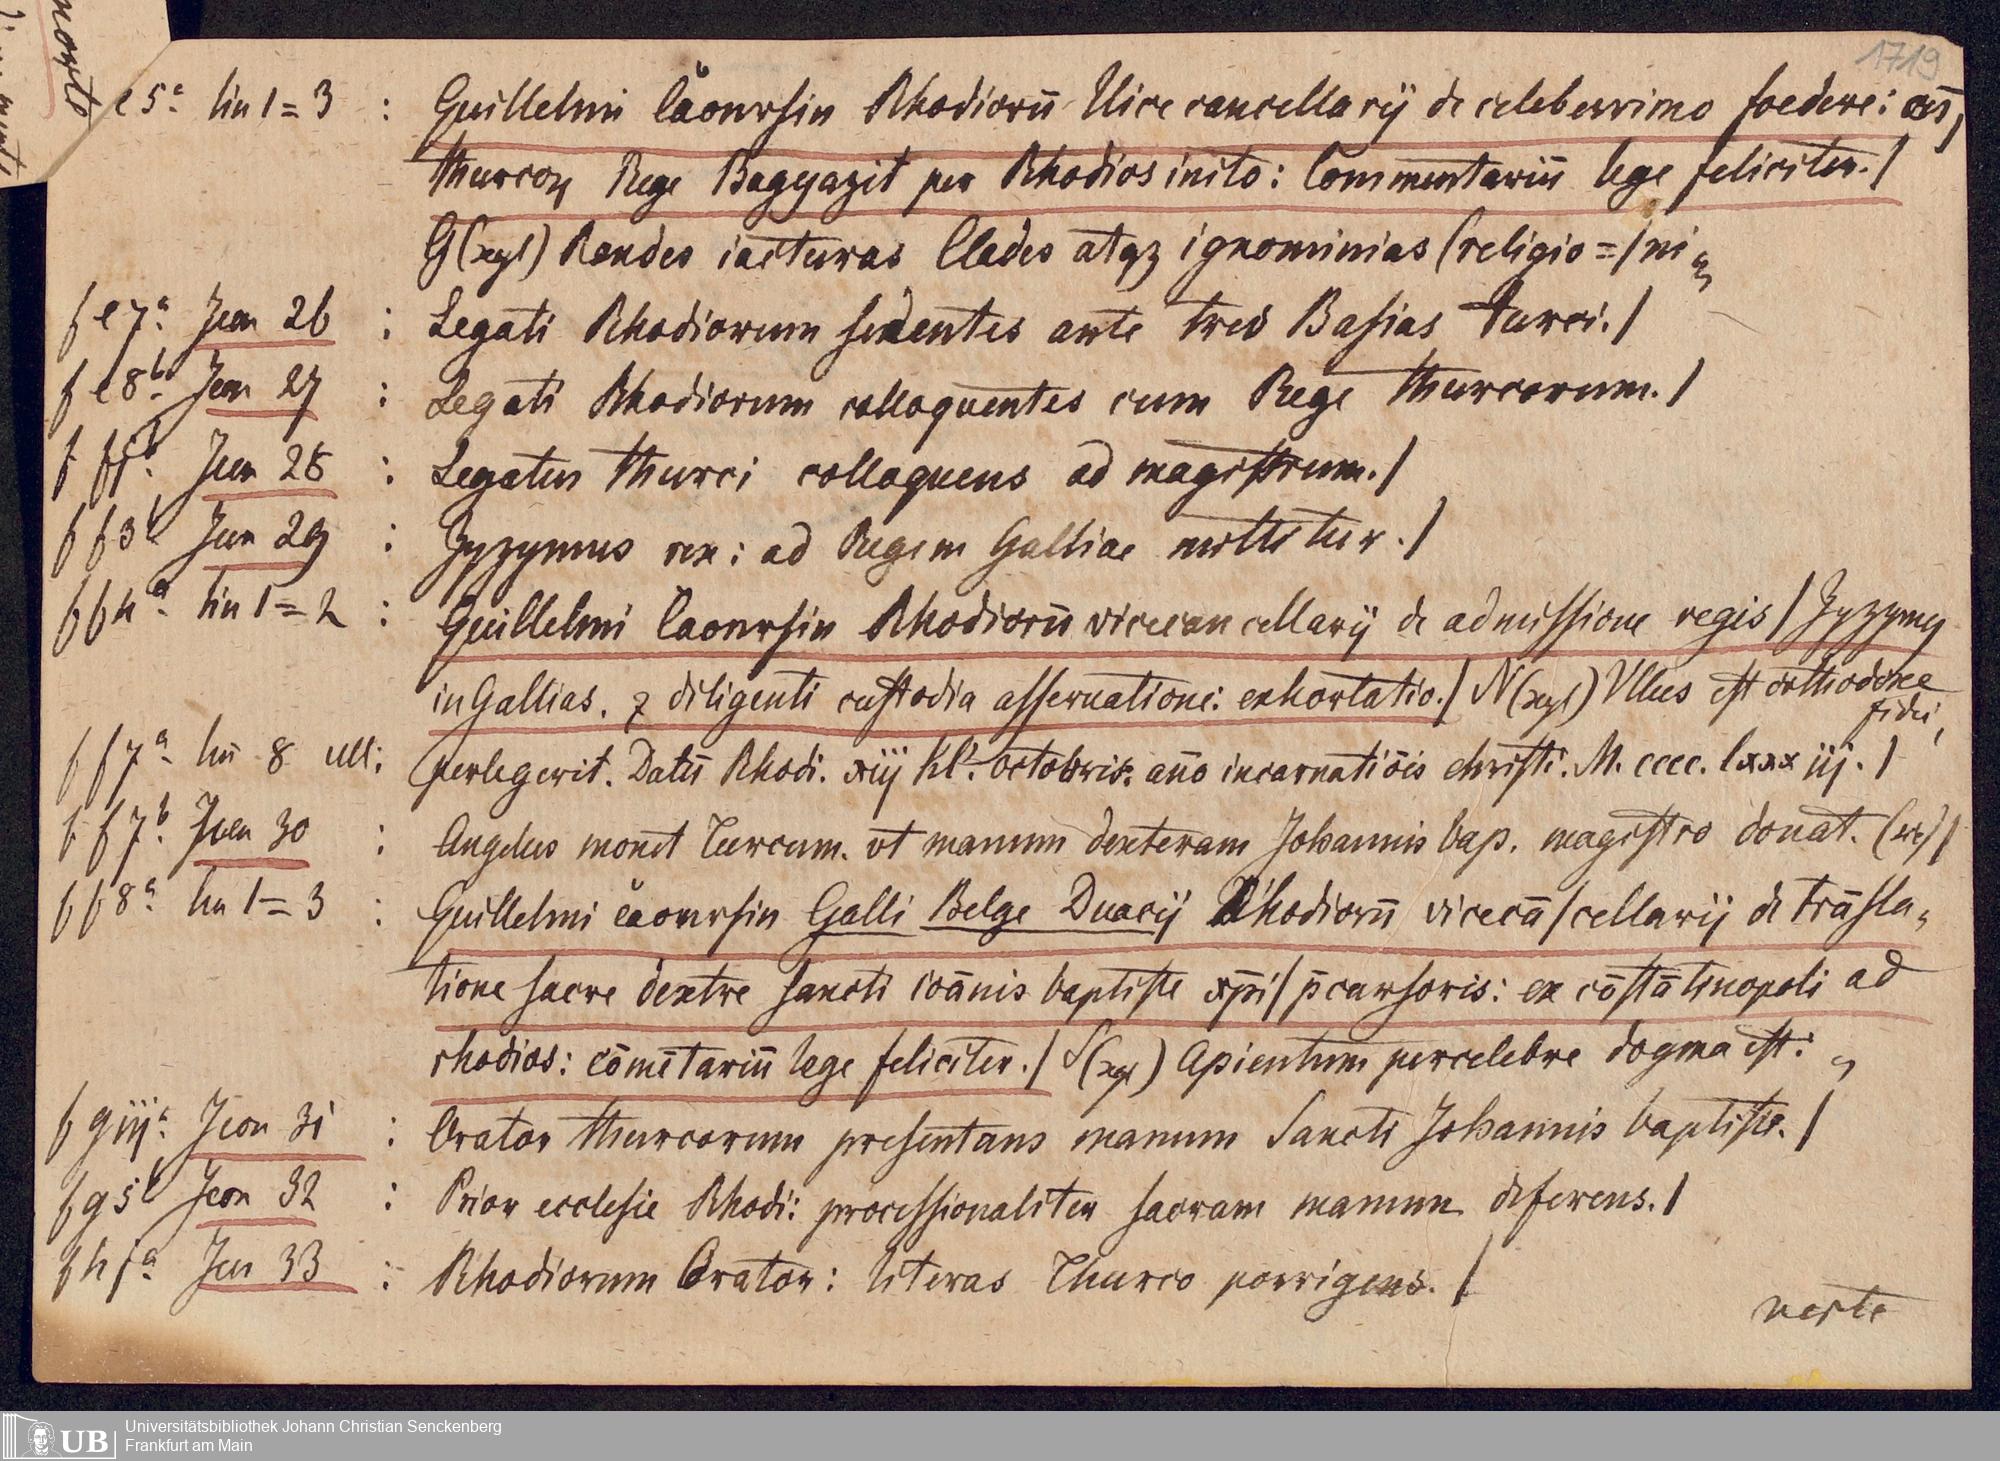 1719
e 5ᵃ lin 1=3 : Guillelmi Caonrsin Rhodiorū Uicecancellarij de celeberrimo foedere: cū/
thurcoꝝ Rege Bagyazit per Rhodios inito: Commentariū lege feliciter./
G(xyl) Randes iacturas Clades atqꝫ ignominias (religio=/ni
f e 7ᵃ. Icon 26 : Legati Rhodiorum sedentes ante tres Basias turci./
f e 8ᵇ. Icon 27 : Legati Rhodiorum colloquentes cum Rege thurcorum./
f f 1ᵇ. Icon 28 : Legatus thurci colloquens ad magistrum./
f f 3ᵇ Icon 29 : Zyzymus rex: ad Regem Galliae mittitur./
f f 4ᵃ. lin 1=2 : Guillelmi Caonrsin Rhodiorū vicecancellarij de admissione regis/Zyzymy
in Gallias. ⁊ diligenti custodia asseruatione: exhortatio./N(xyl) Ullus est orthodoxe
fidei,
f f 7ᵃ lin 8 ult: perlegerit. Datū Rhodi. xiij kl'. octobris. año incarnatiōis christi. M. cccc. lxxx iij. /
f f 7ᵇ. Icon 30 : Angelus monet Turcum. vt manum dexteram Johannis bap. magistro donat. (sic)/
f f 8ᵃ. lin 1=3 : Guillelmi caonrsin Galli Belge Duacij Rhodiorū vicecā/cellarij de trāsla-
tione sacre dextre sancti ioānis baptiste xp̄i/p̄cursoris: ex cōstātinopoli ad
rhodios: cōmētariū lege feliciter./S(xyl) Apientum percelebre dogma est:
f giijᵃ. Icon 31 : Orator thurcorum presentans manum Sancti Johannis baptiste./
f g 5ᵇ Icon 32 : Prior ecclesie Rhodi: processionaliter sacram manum deferens./
f h 1ᵃ. Icon 33 : Rhodiorum Orator: literas Thurco porrigens. /
verte
UB
Universitätsbibliothek Johann Christian Senckenberg
Frankfurt am Main